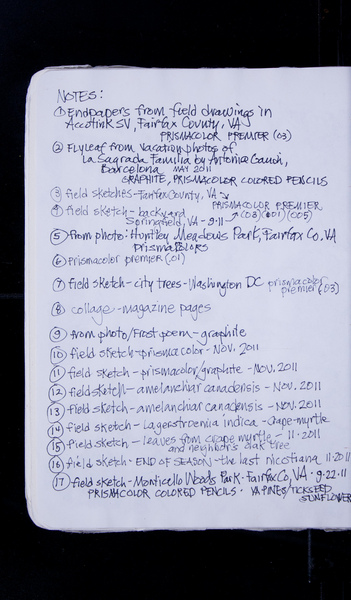 NOTES:
① Endpapers from field drawings in
Accotink SV, Fairfax County, VA
PRISMACOLOR PREMIER (03)
② Flyleaf from vacation photos of
La Sagrada Familia by Antonio Gaudi,
Barcelona MAY 2011
GRAPHITE, PRISMACOLOR COLORED PENCILS
③ field sketches - Fairfax County, VA ↘
PRISMACOLOR PREMIER
④ field sketch - backyard
Springfield, VA - 9.11 → (03)(01)(005)
⑤ from photo: Huntley Meadows Park, Fairfax Co, VA
PRISMACOLORS
⑥ Prismacolor premier (.01)
⑦ field sketch - city trees - Washington DC prismacolor
premier (.03)
⑧ collage - magazine pages
⑨ from photo/Frost poem - graphite
⑩ field sketch - prismacolor - NOV. 2011
⑪ field sketch - prismacolor/graphite - NOV. 2011
⑫ field sketch - amelanchiar canadensis - NOV. 2011
⑬ field sketch - amelanchiar canadensis - NOV. 2011
⑭ field sketch - Lagerstroemia indica - Crape-myrtle
⑮ field sketch - leaves from crape myrtle - 11.2011
and neighbor's oak tree
⑯ field sketch - END OF SEASON - the last nicotiana 11.2011
⑰ field sketch - Monticello Woods Park - Fairfax Co, VA - 9.22.11
PRISMACOLOR COLORED PENCILS - VA PINES/TICKSEED
SUNFLOWER